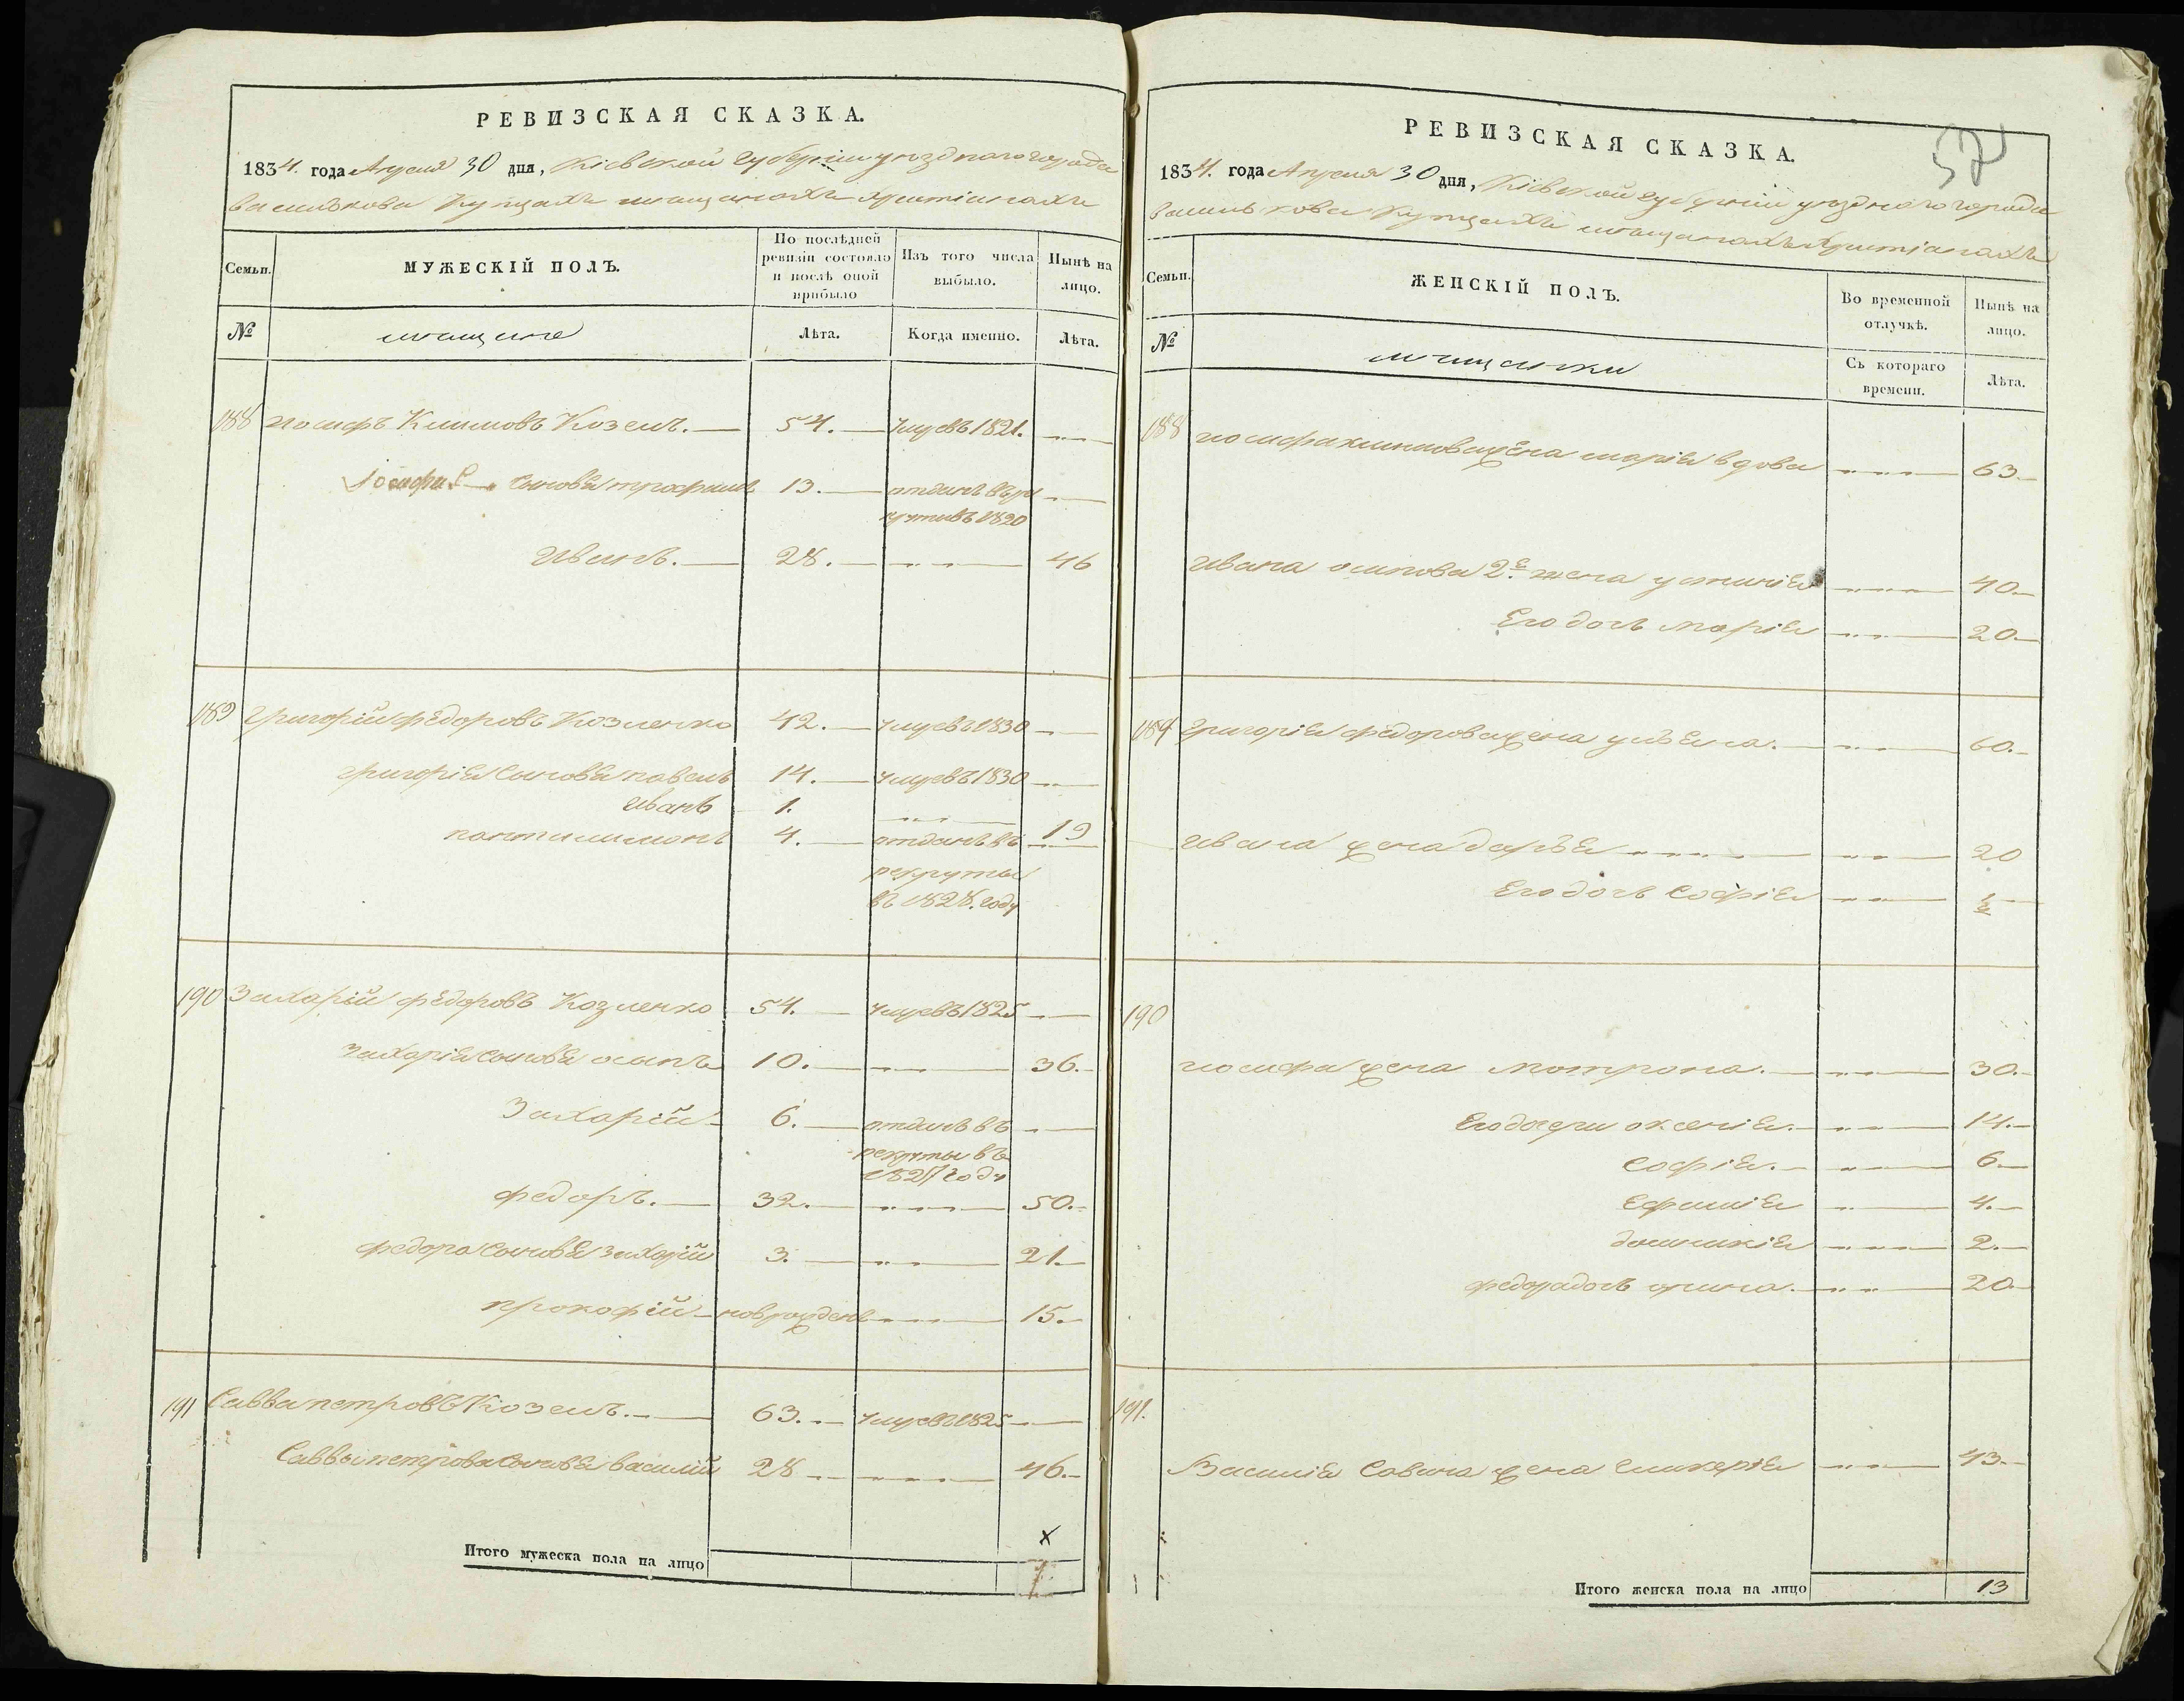 РЕВИЗСКАЯ СКАЗКА.
1834. года Апреля 30 дня, Кіевской губерніи уезднаго города
василькова Купцахъ мещанахъ христіанахъ
Семьи.
МУЖЕСКІЙ ПОЛЪ.
По послѣдней ревизіи состояло и послѣ оной прибыло
Изъ того числа выбыло.
Нынѣ на лицо.
№
мещане
Лѣта.
Когда именно.
Лѣта.
188 иосифъ Климовъ Козелъ. 54. умре въ 1821.
Іосифа сыновья трофимъ 13. отданъ въ ре
круты въ 1820
Иванъ. 28. 46
189 Григорій федоровъ Козленко 42. умре въ 1830
григорія сыновья павелъ 14. умре въ 1830
иванъ 1. 19
пантилимонъ 4. отданъ въ
рекруты
въ 1828. году
190 Захарій федоровъ Козленко 54. умре въ 1825
захарія сыновья осипъ 10. 36.
Захарій 6. отданъ въ
рекруты въ
1827 году
федоръ. 32. 50.
федора сыновья захарій 3. 21.
прокофій новрожденъ 15.
191 Савва петровъ Козелъ. 63. умре въ 1825
Саввы петрова сыновья василій 28 46.
х
Итого мужеска пола на лицо 7
57
РЕВИЗСКАЯ СКАЗКА.
1834. года Апреля 30 дня, Кіевской губерніи уезднаго города
василькова Купцахъ мещанахъ христіанахъ
Семьи.
ЖЕНСКІЙ ПОЛЪ.
Во временной отлучкѣ.
Нынѣ на лицо.
№
мещанки
Съ котораго времени.
Лѣта.
188 иосифа климова жена марія вдова 63.
Ивана осипова 2я жена устинія 40.
Его дочь марія 20.
189 Григорія федорова жена ульяна. 60.
Ивана жена дарья 20
Его дочь софія ½
190
иосифа жена мотрона. 30.
Его дочери оксенія. 14.
софія. 6.
ефимія 4.
домникія 2.
федора дочь орина. 20.
191.
Василія Савина жена гликерія 43.
Итого женска пола на лицо 13